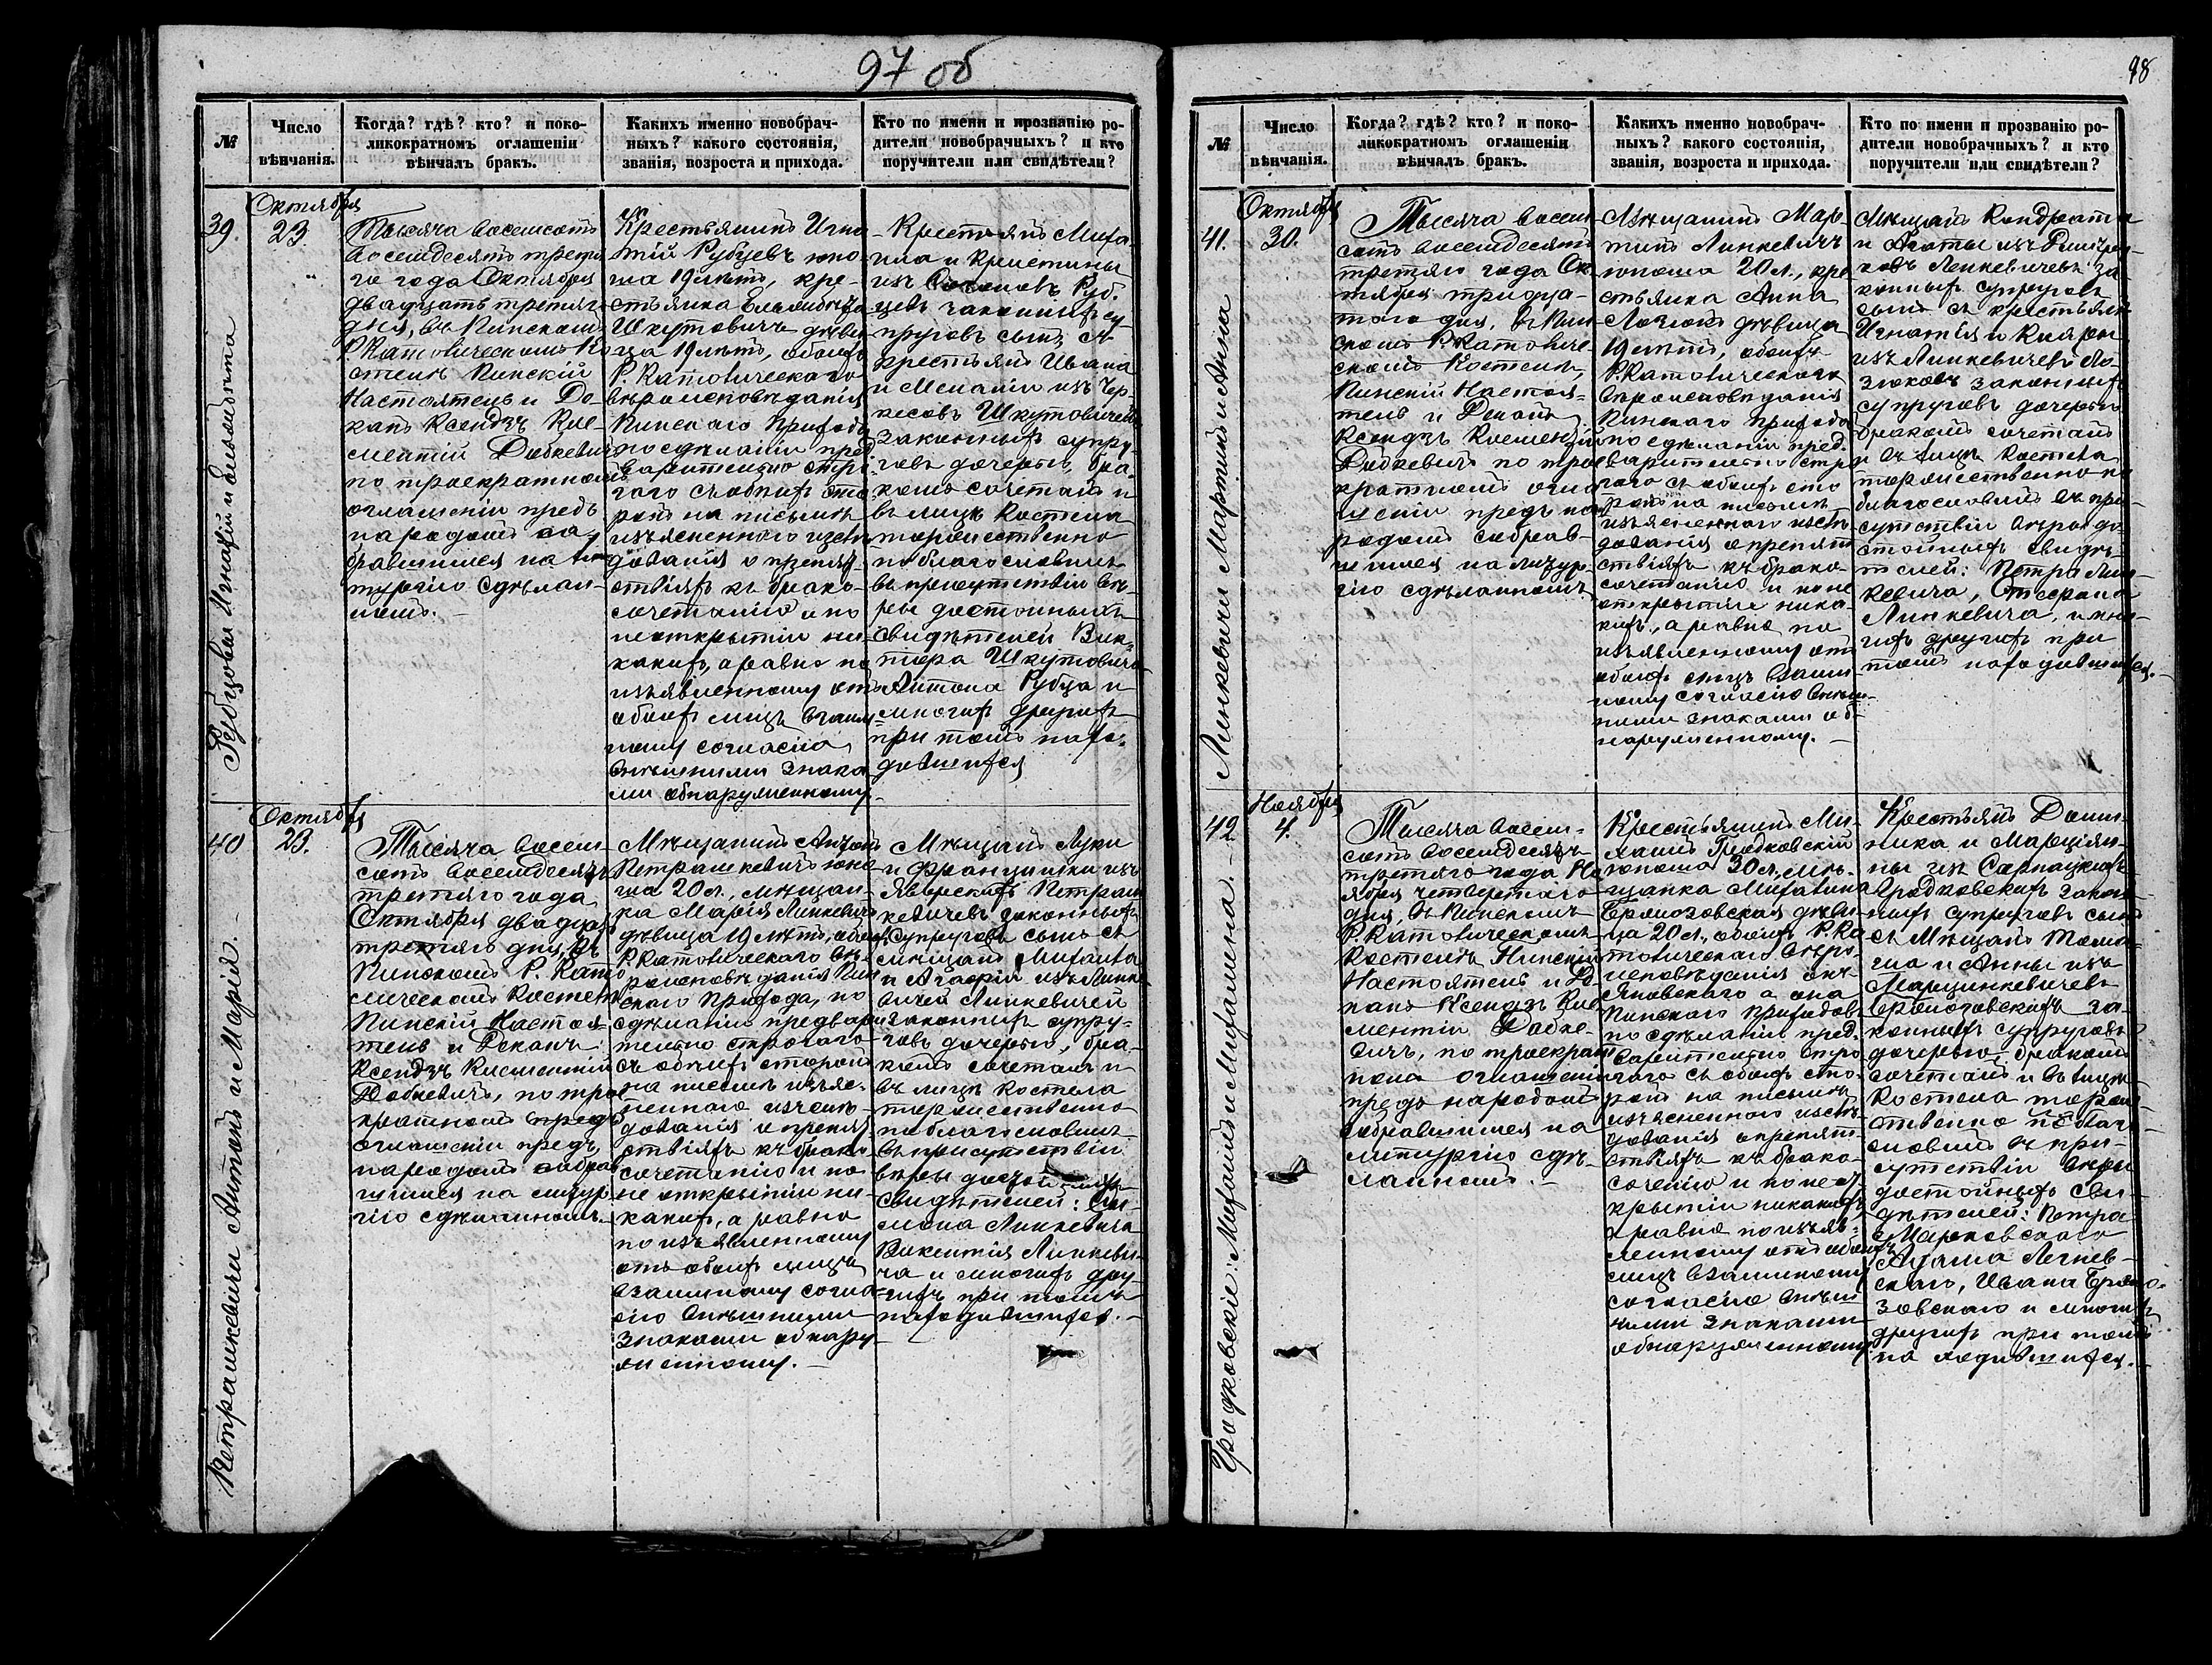 97 об
№
Число
вѣнчанія.
Когда? гдѣ? кто? и поко-
ликократномъ оглашеніи
вѣнчалъ бракъ.
Какихъ именно новобрач-
ныхъ? какого состоянія,
званія, возроста и прихода.
Кто по имени и прозванію ро-
дители новобрачныхъ? и кто
поручители или свидѣтели?
39.
Октября
23
Тысяча восемьсотъ
восемьдесятъ треть
го года Октября
двадцать третьяг
дня, въ Пинскомъ
Р. Католическомъ Ко
стелѣ Пинскій
Настоятель и Де-
канъ Ксендзъ Кле-
ментій
по троекратномъ
оглашеніи предъ
народомъ со
бравшимся на ли
тургію сдѣлан-
номъ.
Крестьянинъ Игна
тій Рубцевъ юно
ша 19 лѣтъ, кре-
стьянка
Шкутовичъ дѣви
ца 19 лѣтъ, обоихъ
Р. Католическаго
вѣроисповѣданія
Пинскаго прихода
по сдѣланіи пред
варительно стро
гаго съ обоихъ сто
ронъ на письмѣ
изъясненнаго изслѣ
дованія о препят
ствіяхъ къ брако-
сочетанію и по
неоткрытіи ни-
какихъ, а равно по
изъявленному отъ
обоихъ лицъ взаим
ному согласію
внѣшними знака
ми обнаруженному.
Крестьянъ Миха-
ила и Кристины
изъ Руб-
цевъ законныхъ су-
пруговъ сынъ, съ
крестьянъ Ивана
и Меланіи изъ Чер-
касовъ Шкутовичей
законныхъ супру-
говъ дочерью, бра-
комъ сочеталъ и
въ лицѣ Костела
торжественно
поблагословилъ
въ присутствіи вѣ-
ры достойныхъ
свидѣтелей Вик-
тора Шкутовича
Антона Рубца и
многихъ другихъ
при томъ нахо-
дившихся
Рубцовы Игнатій и
40
Октября
23.
Тысяча восемь-
сотъ восемьдесятъ
третьяго года
Октября двадцать
третьяго дня, въ
Пинскомъ Р. Като
лическомъ Костелѣ
Пинскій Настоя-
тель и Деканъ
Ксендзъ Климентій
по трое
кратномъ предъ
оглашеніи предъ
народомъ собрав
шимся на литур
гію сдѣланномъ.
Мѣщанинъ Антонъ
Петрашкевичъ юно
ша 20 л., мѣщан-
ка Марія Линкевичъ
дѣвица 19 лѣтъ, обоихъ
Р. Католическаго вѣ-
роисповѣданія Пин
скаго прихода, по
сдѣланіи предвари
тельно строгаго
съ обоихъ сторонъ
на письмѣ изъяс-
неннаго изслѣ-
дованія о препят
ствіяхъ къ брако
сочетанію и по
не открытіи ни-
какихъ, а равно
по изъявленному
отъ обоихъ лицъ
взаимному согла-
сію внѣшними
знаками обнару-
женному.
Мѣщанъ Луки
и Францишки изъ
Яворскихъ Петраш
кевичевъ законныхъ
супруговъ сынъ съ
мѣщанъ Михаила
и Агафіи изъ Линке
вичей Линкевичей
законныхъ супру-
говъ дочерью, бра-
комъ сочеталъ и
въ лицѣ костела
торжественно
поблагословилъ
въ присутствіи
вѣры достойныхъ
свидѣтелей: Си-
мона Линкевича
Викентія Линкеви-
ча и многихъ дру-
гихъ при томъ
находившихся.
Петрашкевичи Антонъ и Марія.
98
№
Число
вѣнчанія.
Когда? гдѣ? кто? и поко-
ликократномъ оглашеніи
вѣнчалъ бракъ.
Какихъ именно новобрач-
ныхъ? какого состоянія,
званія, возроста и прихода.
Кто по имени и прозванію ро-
дители новобрачныхъ? и кто
поручители или свидѣтели?
41.
Октября
30.
Тысяча восемь
сотъ восемьдесятъ
третьяго года Ок
тября тридца-
таго дня, въ Пин
скомъ Р. Католиче-
скомъ Костелѣ
Пинскій Настоя-
тель и Деканъ
Ксендзъ Клементій
по трое
кратномъ огла
шеніи предъ на
родомъ собрав-
шимся на литур-
гію сдѣланномъ
Мѣщанинъ Мар-
тинъ Линкевичъ
юноша 20 л., кре
стьянка Анна
дѣвица
19 лѣтъ, обоихъ
Р. Католическаго
вѣроисповѣданія
Пинскаго прихода
по сдѣланіи пред-
варительно стро
гаго съ обоихъ сто
ронъ на письмѣ
изъясненнаго изслѣ
дованія о препят
ствіяхъ къ брако
сочетанію и по не
открытіи ника-
кихъ, а равно по
изъявленному отъ
обоихъ лицъ взаим-
ному согласію внѣш-
ними знаками об-
наруженному.
Мѣщанъ Кондрата
и Агаты изъ
Линкевичевъ за-
конныхъ супруговъ
сынъ съ крестьянъ
Игнатія и
изъ Линкевичевъ
законныхъ
супруговъ дочерью
бракомъ сочеталъ
и въ лицѣ Костела
торжественно по
благословилъ въ при-
сутствіи вѣры до-
стойныхъ свидѣ-
телей: Петра Лин-
кевича,
Линкевича, и мно-
гихъ другихъ при
томъ находившихся.
Линкевичи Мартинъ и Анна
42
Ноября
4.
Тысяча восемь-
сотъ восемьдесятъ
третьяго года Но
ября четвертаго
дня, въ Пинскомъ
Р. Католическомъ
Костелѣ Пинскій
Настоятель и Де
канъ Ксендзъ Кле
ментій
по троекрат
номъ оглашеніи
предъ народомъ
собравшимся на
литургію сдѣ-
ланномъ.
Крестьянинъ Ми-
хаилъ Гродковскій
юноша 30 л., мѣ-
щанка Михалина
дѣви
ца 20 л., обоихъ Р. Ка
толическаго вѣро-
исповѣданія онъ
Яновскаго а она
Пинскаго приходовъ
по сдѣланіи пред-
варительно стро
гаго съ обоихъ сто-
ронъ на письмѣ
изъясненнаго изслѣ-
дованія о препят-
ствіяхъ къ брако-
сочетанію и по неот
крытіи никакихъ
а равно по изъяв-
ленному отъ обоихъ
лицъ взаимному
согласію внѣш
ними знаками
обнаруженному
Крестьянъ Доми-
ника и Марціан-
ны изъ
Гродковскихъ закон-
ныхъ супруговъ сынъ
съ Мѣщанъ Тома-
ша и Анны изъ
Марцинкевичевъ
за-
конныхъ супруговъ
дочерью, бракомъ
сочеталъ и въ лицѣ
Костела торже-
ственно поблаго-
словилъ въ при-
сутствіи вѣры
достойныхъ сви-
дѣтелей: Петра
Марковскаго
Адама
Ивана
и многихъ
другихъ при томъ
находившихся.
Гродковскіе: Михаилъ и Михалина.